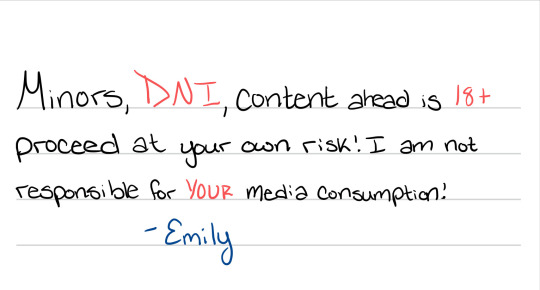 Minors, DNI, content ahead is 18+
proceed at your own risk! I am not
responsible for YOUR media consumption!
- Emily